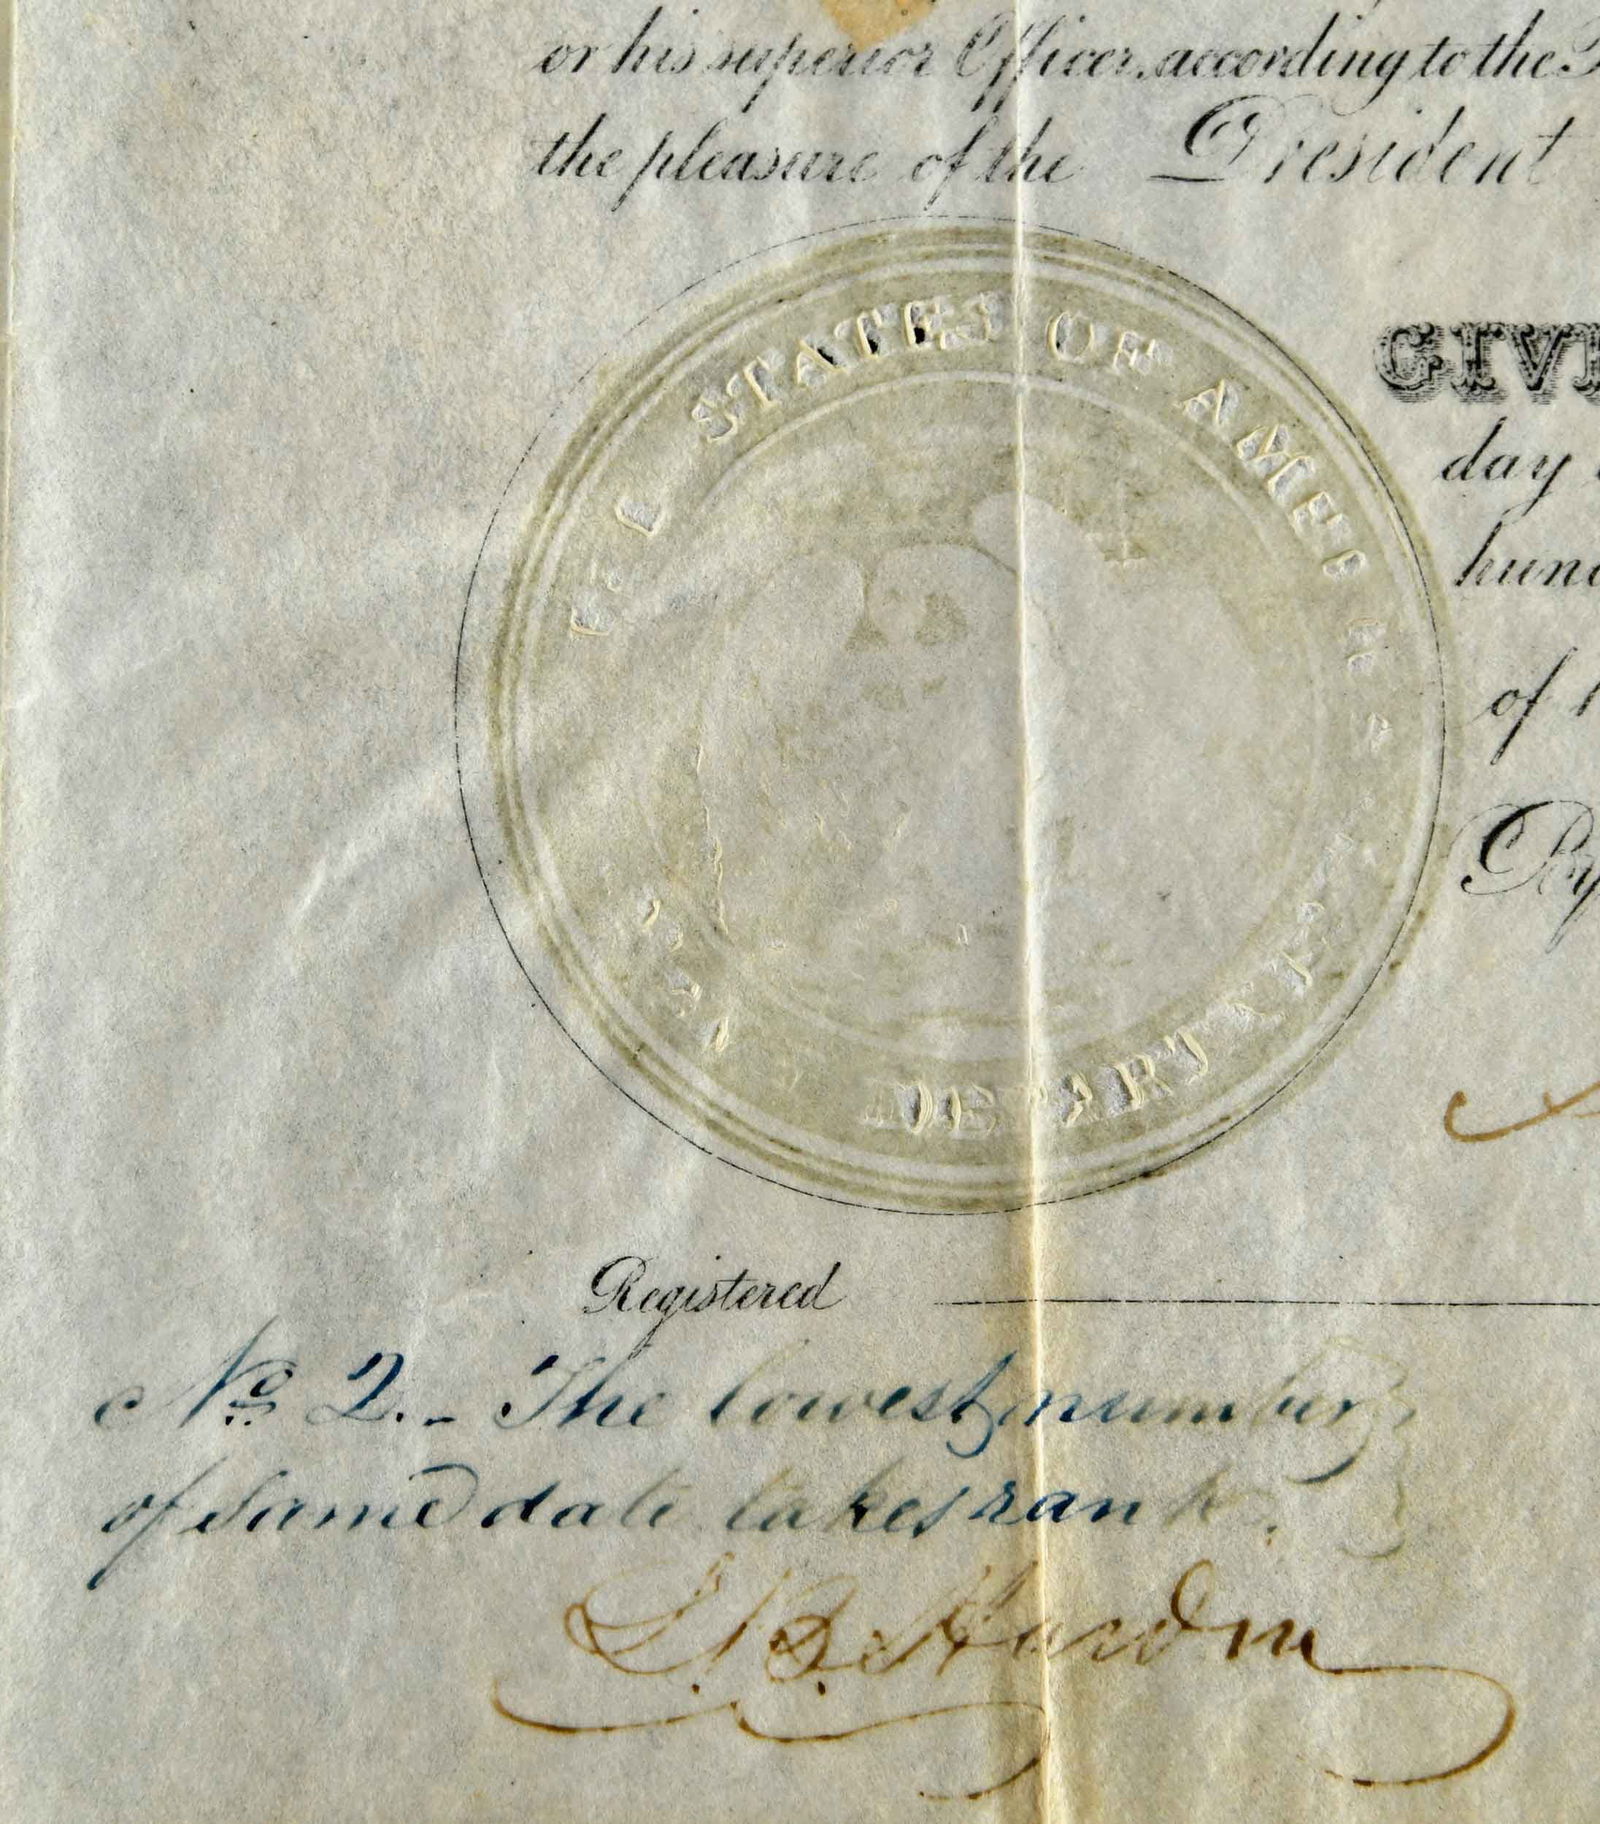 or his superior Officer, according to the
the pleasure of the President
STATES OF AMERICA
GIVE
day
hund
of
By
DEPARTME
Registered
No. 2. - The lowest number
of same date takes rank.
Hardin